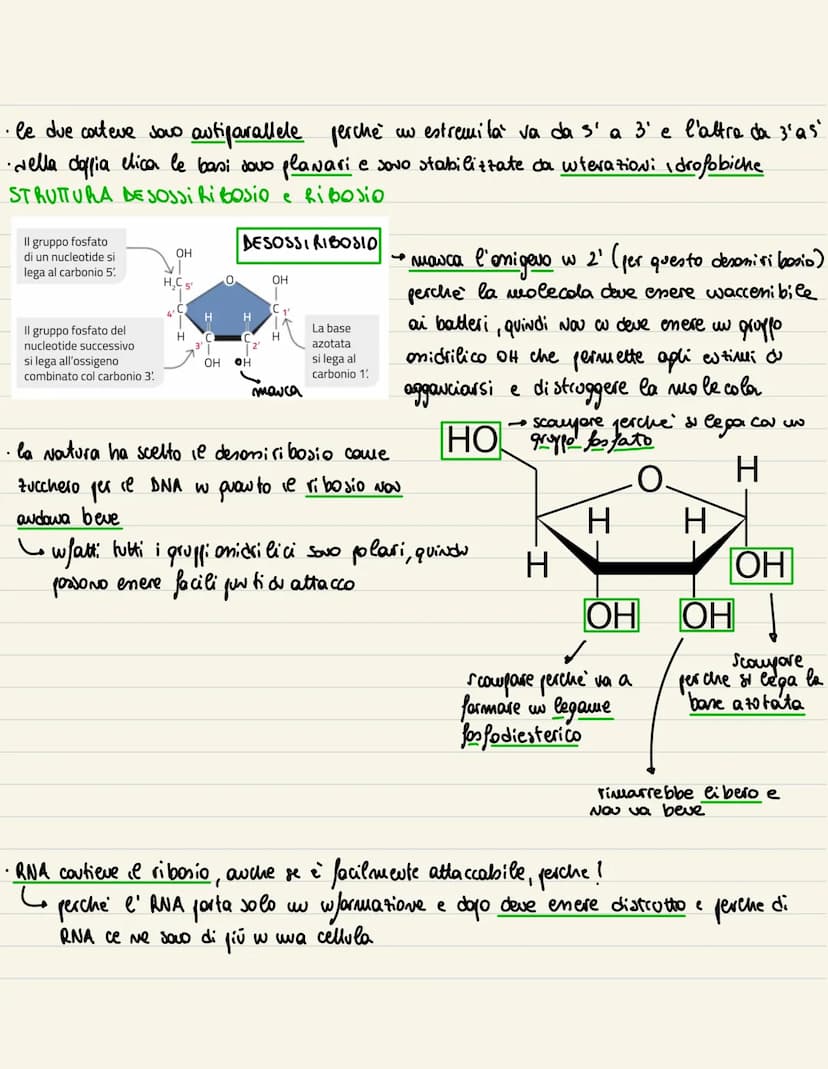 · le due catene sono antiparallele perchè un estremità va da 5' a 3' e l'altra da 3' a 5'
· nella doppia elica le basi sono planari e sono stabilizzate da interazioni idrofobiche
STRUTTURA DESOSSIRIBOSIO e RIBOSIO
Il gruppo fosfato
di un nucleotide si
lega al carbonio 5'.
DESOSSIRIBOSIO
OH
H₂C 5'
O
OH
4' C
H
H
C 1'
H
C
C
H
3'
2'
OH
OH
Il gruppo fosfato del
nucleotide successivo
si lega all'ossigeno
combinato col carbonio 3'.
La base
azotata
si lega al
carbonio 1'.
manca
→ manca l'ossigeno in 2' (per questo desossiribosio)
perchè la molecola deve essere inaccessibile
ai batteri, quindi non ci deve essere un gruppo
ossidrilico OH che permette agli estinui di
agganciarsi e distruggere la molecola
HO
→ scompare perchè si lega con un
gruppo fosfato
O
H
H
H
H
OH
OH
OH
· la natura ha scelto il desossiribosio come
zucchero per il DNA in quanto il ribosio non
andava bene
↳ infatti tutti i gruppi ossidrilici sono polari, quindi
possono essere facili punti di attacco
scompare perchè va a
formare un legame
fosfodiesterico
scompare
perche si lega la
base azotata
rimarrebbe libero e
non va bene
· RNA contiene il ribosio, anche se è facilmente attaccabile, perche!
↳ perchè l' RNA porta solo un informazione e dopo deve essere distrutto e perche di
RNA ce ne sono di più in una cellula